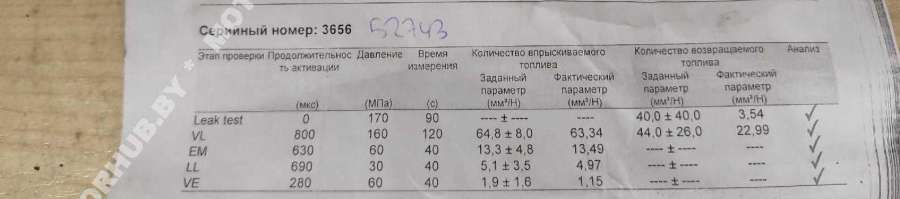 Серийный номер: 3656 52743
Этап проверки Продолжительнос Давление Время Количество впрыскиваемого Количество возвращаемого Анализ
ть активации измерения топлива топлива
Заданный Фактический Заданный Фактический
параметр параметр параметр параметр
(мкс) (МПа) (с) (мм³/H) (мм³/H) (мм³/H) (мм³/H)
Leak test 0 170 90 ---- ± ---- ---- 40,0 ± 40,0 3,54 ✓
VL 800 160 120 64,8 ± 8,0 63,34 44,0 ± 26,0 22,99 ✓
EM 630 60 40 13,3 ± 4,8 13,49 ---- ± ---- ---- ✓
LL 690 30 40 5,1 ± 3,5 4,97 ---- ± ---- ---- ✓
VE 280 60 40 1,9 ± 1,6 1,15 ---- ± ---- ---- ✓
ORHUB.BY * MOT